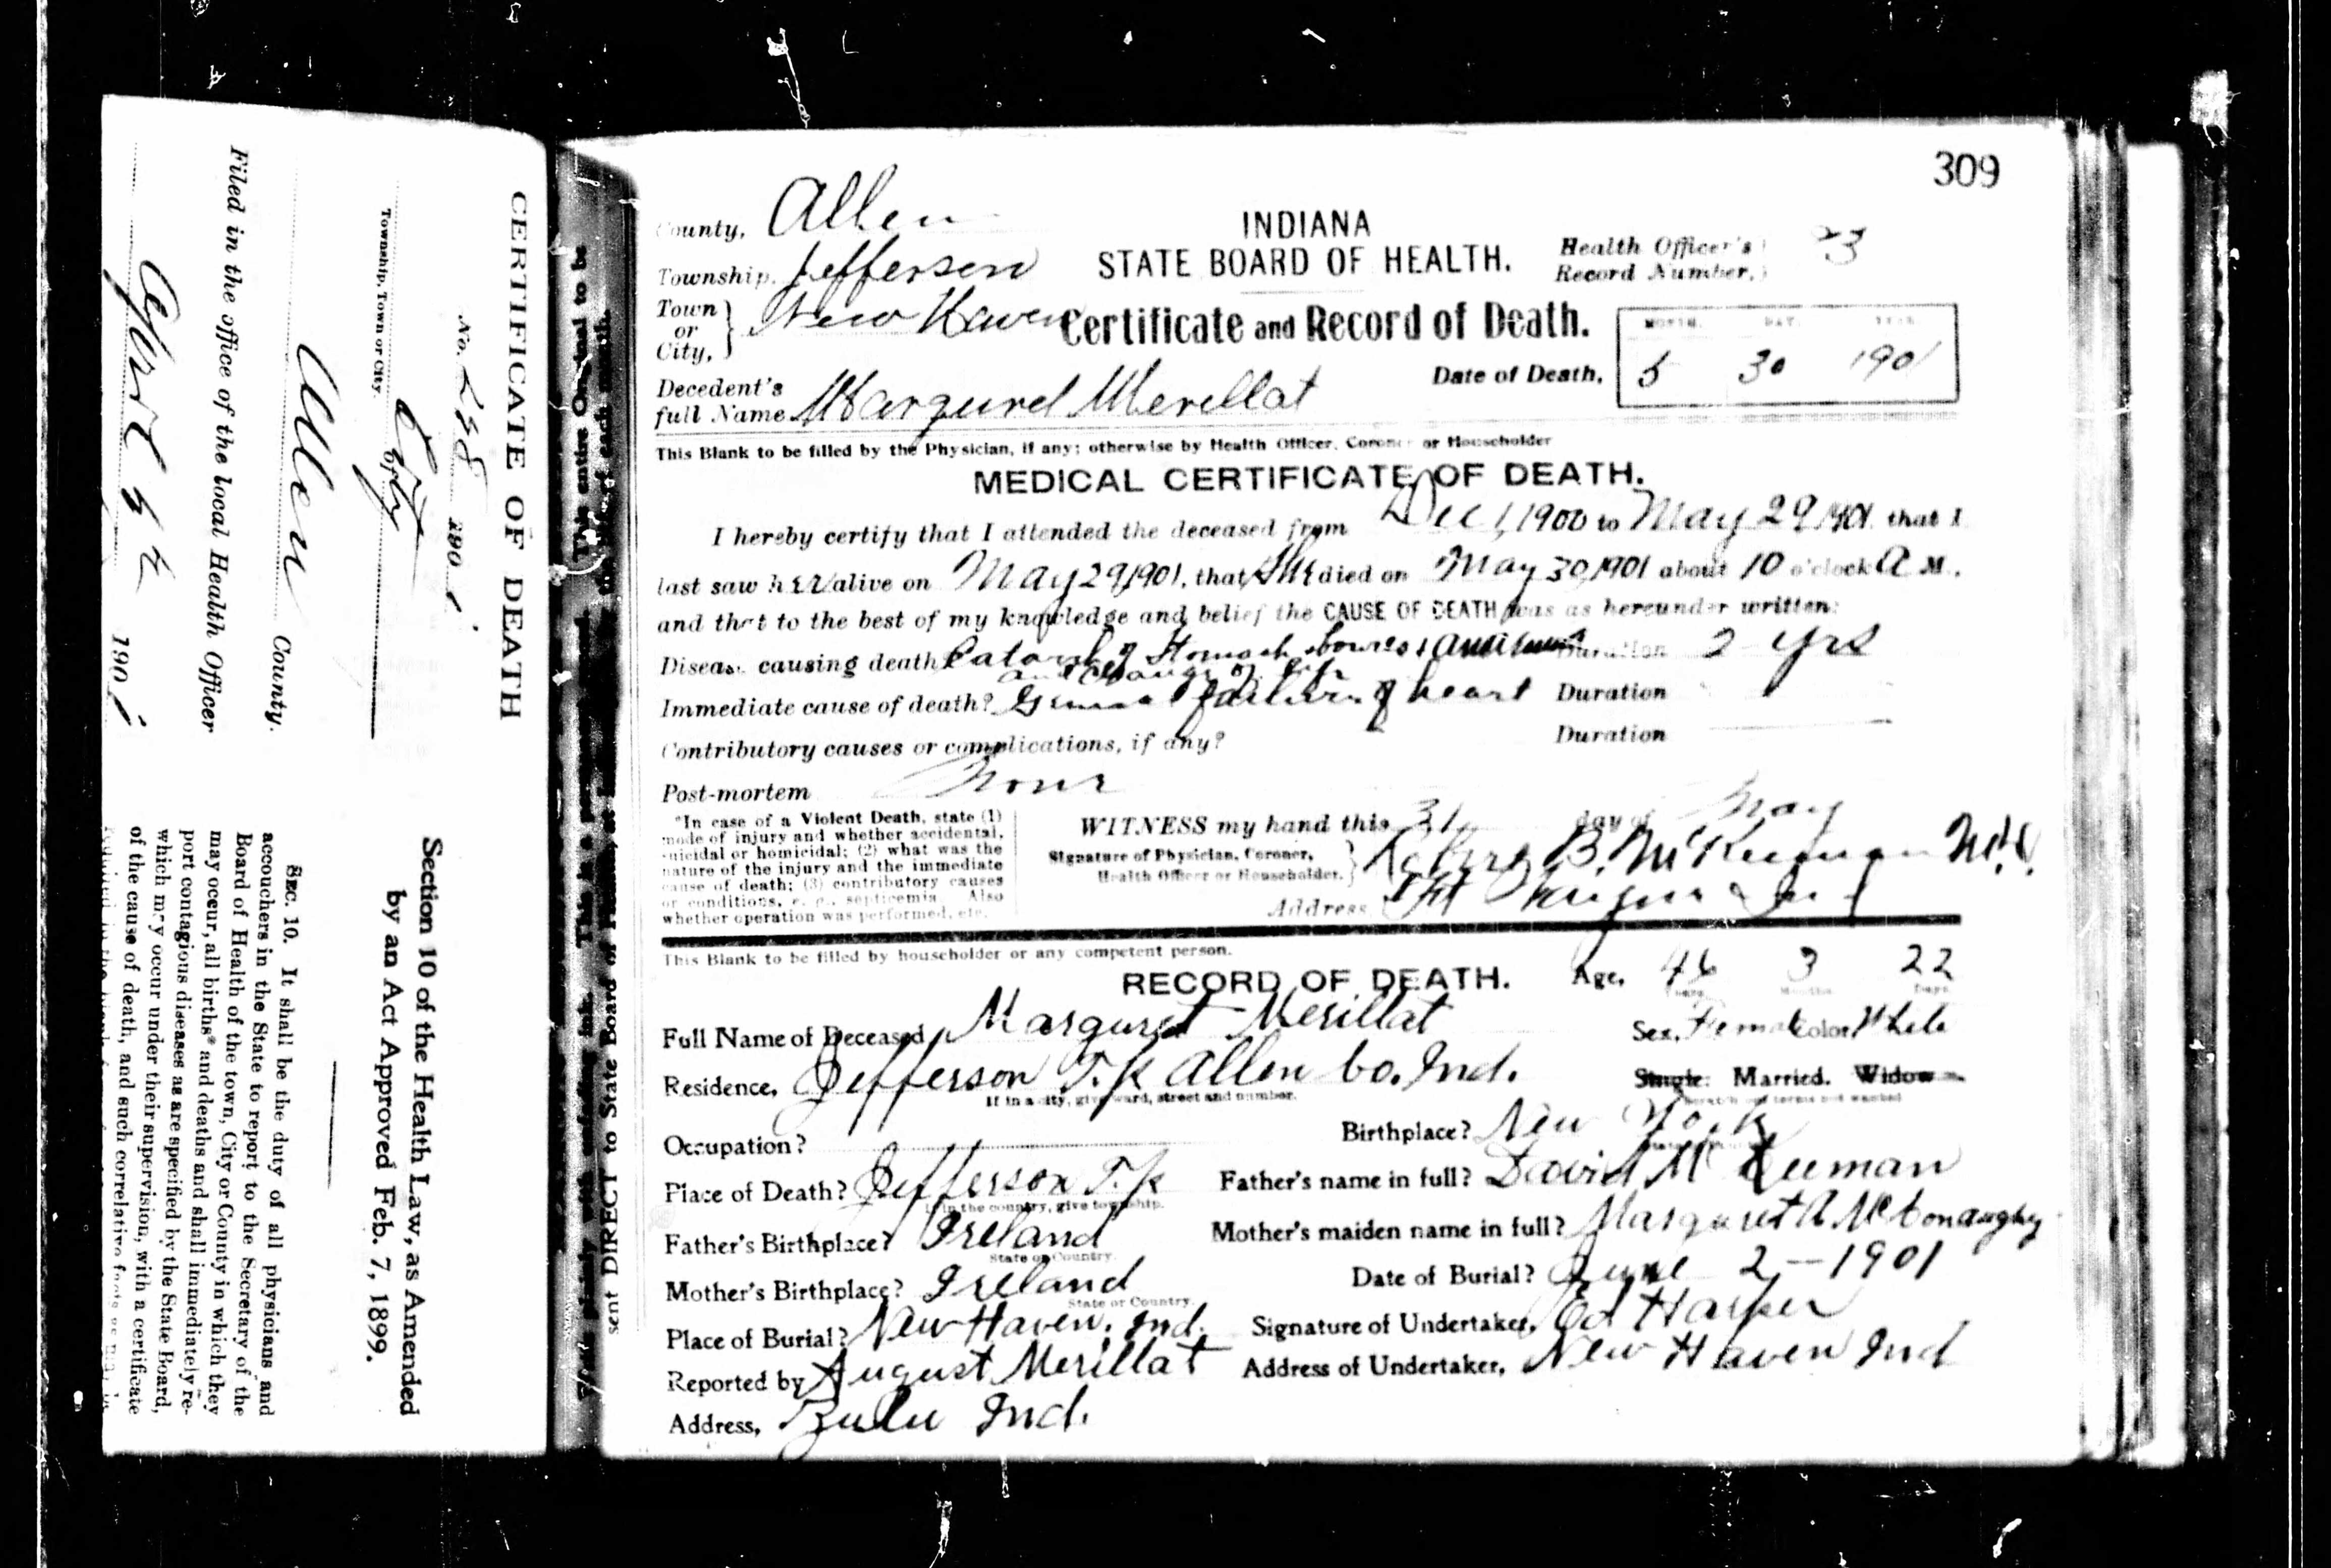 CERTIFICATE OF DEATH
No. 190
Township, Town or City.
Allen County.
Filed in the office of the local Health Officer
190
Section 10 of the Health Law, as Amended
by an Act Approved Feb. 7, 1899.
SEC. 10. It shall be the duty of all physicians and
accouchers in the State to report to the Secretary of the
Board of Health of the town, City or County in which they
may occur, all births* and deaths and shall immediately re-
port contagious diseases as are specified by the State Board,
which may occur under their supervision, with a certificate
of the cause of death, and such correlative facts as may be
sent DIRECT to State Board of
309
County, Allen
INDIANA
Township, Jefferson
STATE BOARD OF HEALTH.
Health Officer's
Record Number, 23
Town
or
City, } New Haven
Certificate and Record of Death.
MONTH. DAY. YEAR
Date of Death, 5 30 1901
Decedent's
full Name Marguret Merillat
This Blank to be filled by the Physician, if any; otherwise by Health Officer, Coroner or Householder
MEDICAL CERTIFICATE OF DEATH.
I hereby certify that I attended the deceased from Dec 1, 1900 to May 29 1901 that I
last saw her alive on May 29, 1901, that She died on May 30, 1901 about 10 o'clock A M.
and that to the best of my knowledge and belief the CAUSE OF DEATH was as hereunder written:
Disease causing death? Catarrh of Stomach bowels & Duration 2 yrs
and change of life
Immediate cause of death? General failure of heart Duration
Contributory causes or complications, if any? Duration
Post-mortem None
*In case of a Violent Death, state (1)
mode of injury and whether accidental,
suicidal or homicidal; (2) what was the
nature of the injury and the immediate
cause of death; (3) contributory causes
or conditions, e. g., septicemia. Also
whether operation was performed, etc.
WITNESS my hand this 31 day of May
Signature of Physician, Coroner,
Health Officer or Householder. } B. McKeeman M.D.
Address Ft Wayne Ind
This Blank to be filled by householder or any competent person.
RECORD OF DEATH.
Age, 46 3 22
Years Months Days
Full Name of Deceased, Marguret Merillat
Sex, Female Color, White
Residence, Jefferson T.p Allen Co. Ind.
If in a city, give ward, street and number.
Single. Married. Widow
Scratch out terms not wanted
Occupation?
Birthplace? New York
Place of Death? Jefferson T.p
If in the country, give township.
Father's name in full? David Mc Keeman
Father's Birthplace? Ireland
State or Country.
Mother's maiden name in full? Margaret A McConaughy
Mother's Birthplace? Ireland
State or Country.
Date of Burial? June 2 - 1901
Place of Burial? New Haven, Ind.
Signature of Undertaker, Ed Harper
Reported by August Merillat
Address of Undertaker, New Haven Ind
Address, Zulu Ind.